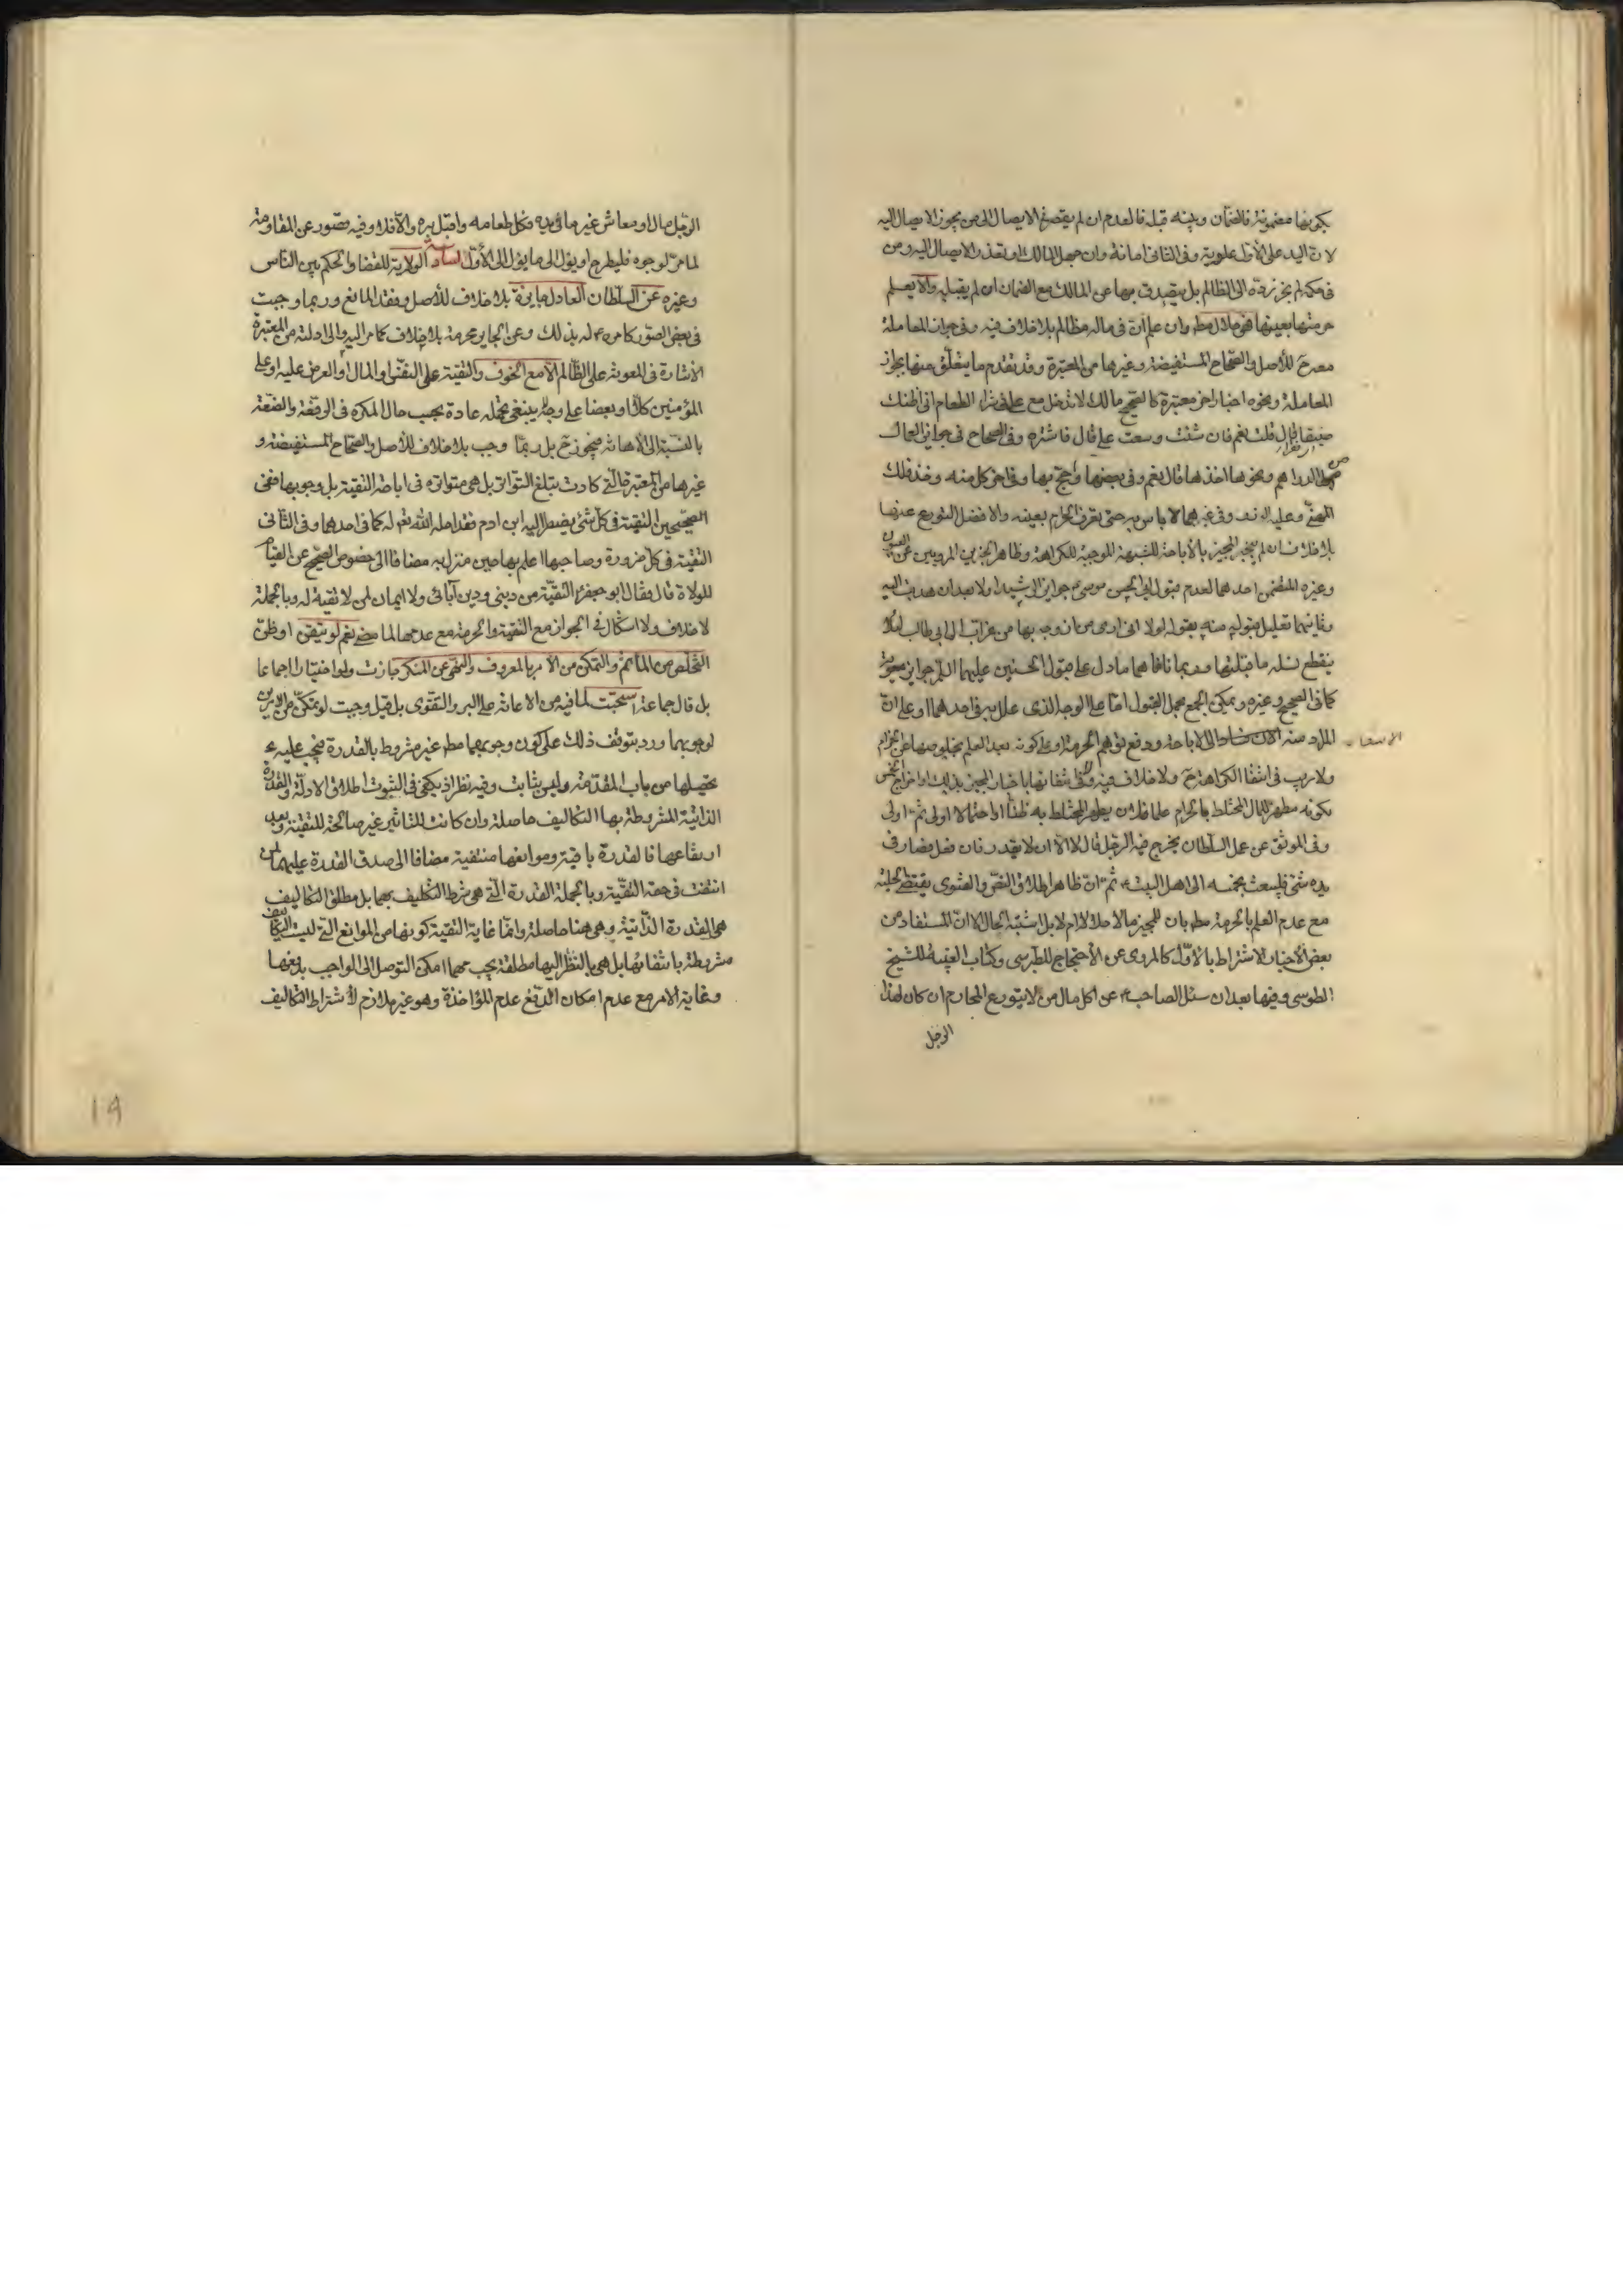 بكونها مضمونة فالضمان وبينه قبله فالعدم ان لم يقصد الايصال الى من يجوز الايصال اليه
لان اليد على الأول علوية وفى الثانى امانة وان جهل المالك او تعذر الايصال اليه ومن
فى حكمه لم يجز رده الى الظالم بل يتصدق بها عن المالك مع الضمان ان لم يقبله والا يعلم
حرمتها بعينها فهو حلال مطم وان علم ان فى ماله مظالم بلا خلاف فيه وفى جواز المعاملة
معه ح للأصل والصحاح المستفيضة وغيرها من المعتبرة وقد تقدم ما يتعلق منها بجواز
المعاملة ونحوه اخبار اخر معتبرة كالصحيح مالك لا تدخل مع على فى شراء الطعام انى اظنك
ضيقا قال قلت نعم فان شئت وسعت على قال فاشتره وفى الصحاح فى جوائز العمال
الدراهم ونحوها اخذها قال نعم وفى بعضها واحج بها وفى اخر كل منه وخذ فلك
المهنى وعليه الوزر وفى غيرهما لا باس به حتى تعرف الحرام بعينه والافضل التورع عنها
بلا خلاف ان لم يخبر المجيز بالأباحة للشبهة الموجبة للكراهة وظاهر الخبرين المرويين عن العيون
وغيره المتضمن احدهما لعدم قبول ابى الحسن موسى ع جوائز الرشيد اولا بعد ان هديت اليه
وثانيهما تعليل قبوله منه بقوله لولا انى ارى من ازوجه بها من عزاب ال ابى طالب لئلا
ينقطع نسله ما قبلتها وربما نافاهما ما دل على قبول الحسنين عليهما السلام جوائز معوية
كما فى الصحيح وغيره ويمكن الجمع بحمل القبول اما على الوجه الذى علل به فى احدهما او على ان
المراد منه الارشاد الى الاباحة ودفع توهم الحرمة او على كونه بعد العلم بخلوصها عن الحرام
الاشعار
ولا ريب فى انتفاء الكراهة ح ولا خلاف فيه وفى انتفائها باخبار المجيز بذلك او اخراج الخمس
لكونه مطهرا للمال المختلط بالحرام علما فلان يطهر المختلط به ظنا او احتمالا اولى ثم اولى
وفى الموثق عن عمل السلطان يخرج فيه الرجل قال لا الا ان لا يقدر فان فعل فصار فى
يده شئ فليبعث بخمسه الى اهل البيت ثم ان ظاهر اطلاق النص والفتوى يقتضى الحلية
مع عدم العلم بالحرمة مطم بان للمجيز مالا حلالا ام لا بل اشتبه الحال الا ان المستفاد من
بعض الأخبار الاشتراط بالأول كالمروى عن الأحتجاج للطبرسى وكتاب الغيبة للشيخ
الطوسى وفيها بعد ان سئل الصاحب ع عن اكل مال من لا يتورع المحارم ان كان لهذا
الرجل
الرجل مال او معاش غير ما فى يده فكل طعامه واقبل بره والا فلا وفيه قصور عن المقاومة
لما مر لوجوه فليطرح او يؤل الى ما يؤل الى الأول السادسة الولاية للقضاء والحكم بين الناس
وغيره عن السلطان العادل جايزة بلا خلاف للأصل وفقد المانع وربما وجبت
فى بعض الصور كامره ع له بذلك وعن الجاير محرمة بلا خلاف كما مر اليه والى ادلته من المعتبرة
الأشارة فى المعونة على الظالم الا مع الخوف والتقية على النفس او المال او العرض عليه او على
المؤمنين كلا او بعضا على وجه لا ينبغى تحمله عادة بحسب حال المكره فى الرفعة والضعة
بالنسبة الى الأهانة فيجوز ح بل ربما وجب بلا خلاف للأصل والصحاح المستفيضة و
غيرها من المعتبرة التى كادت تبلغ التواتر بل هى متواترة فى اباحة التقية بل وجوبها ففى
الصحيحين التقية فى كل شئ يضطر اليه ابن ادم فقد احله الله تعم له كما فى احدهما وفى الثانى
التقية فى كل ضرورة وصاحبها اعلم بها حين تنزل به مضافا الى خصوص الصحيح عن القيام
للولاة قال فقال ابو جعفر ع التقية من دينى ودين آبائى ولا ايمان لمن لا تقية له وبالجملة
لا خلاف ولا اشكال فى الجواز مع التقية والحرمة مع عدمها لما مضى نعم لو تيقن او ظن
التخلص من المأثم والتمكن من الأمر بالمعروف والنهى عن المنكر جازت ولو اختيارا اجماعا
بل قال جماعة استحبت لما فيه من الاعانة على البر والتقوى بل قيل وجبت لو تمكن من الامرين
لوجوبهما ورد بتوقف ذلك على كون وجوبهما مطم غير مشروط بالقدرة فيجب عليه ع
تحصيلها من باب المقدمة وليس بثابت وفيه نظر اذ يكفى فى الثبوت اطلاق الادلة والقدرة
الذاتية المشروطة بها التكاليف حاصلة وان كانت للتاثير غير صالحة للتقية وبعد
ارتفاعها فالقدرة باقية وموانعها منتفية مضافا الى صدق القدرة عليهما لمن
انتفت فى حقه التقية وبالجملة القدرة التى هى شرط التكليف بهما بل مطلق التكاليف
هى القدرة الذاتية وهى هنا حاصلة وانما غاية التقية كونها من الموانع التى ليست التكاليف
مشروطة بانتفائها بل هى بالنظر اليها مطلقة يجب مهما امكن التوصل الى الواجب بدفعها
وغاية الامر مع عدم امكان الدفع عدم المؤاخذة وهو غير ملازم لأشتراط التكاليف
١٩